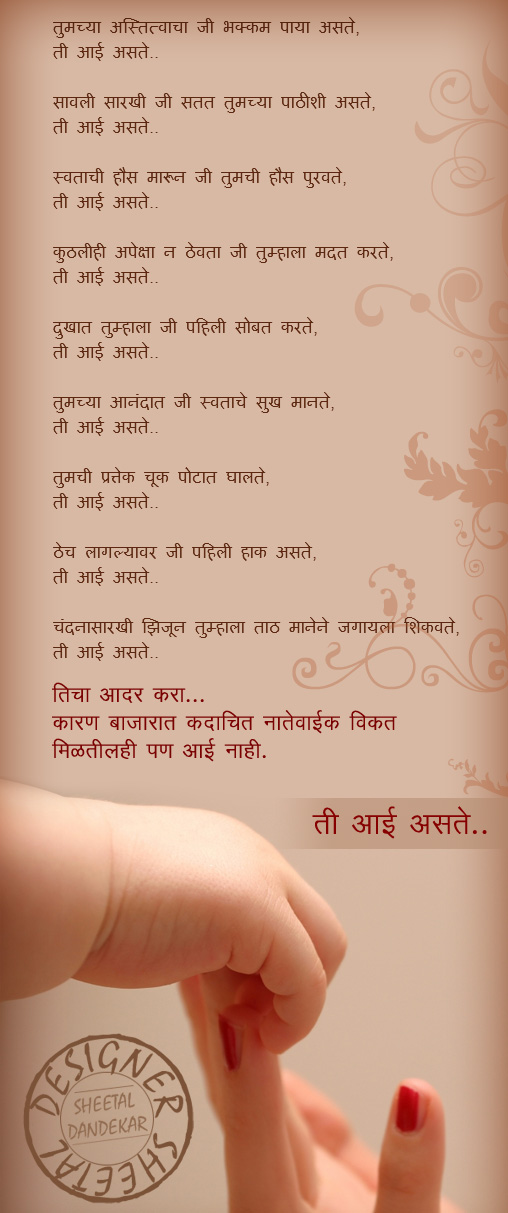 तुमच्या अस्तित्वाचा जी भक्कम पाया असते,
ती आई असते..
सावली सारखी जी सतत तुमच्या पाठीशी असते,
ती आई असते..
स्वताची हौस मारून जी तुमची हौस पुरवते,
ती आई असते..
कुठलीही अपेक्षा न ठेवता जी तुम्हाला मदत करते,
ती आई असते..
दुखात तुम्हाला जी पहिली सोबत करते,
ती आई असते..
तुमच्या आनंदात जी स्वताचे सुख मानते,
ती आई असते..
तुमची प्रत्तेक चूक पोटात घालते,
ती आई असते..
ठेच लागल्यावर जी पहिली हाक असते,
ती आई असते..
चंदनासारखी झिजून तुम्हाला ताठ मानेने जगायला शिकवते,
ती आई असते..
तिचा आदर करा...
कारण बाजारात कदाचित नातेवाईक विकत
मिळतीलही पण आई नाही.
ती आई असते..
DESIGNER
SHEETAL
DANDEKAR
SHEETAL